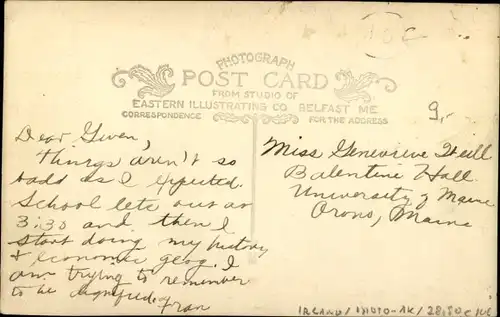 10 C
PHOTOGRAPH
POST CARD
FROM STUDIO OF
EASTERN ILLUSTRATING CO. BELFAST ME
CORRESPONDENCE
FOR THE ADDRESS
9,-
Dear Gwen,
Things aren't so
badd as I expected.
School lets out at
3:30 and then I
start doing my history
& economic geog. I
am trying to remember
to be dignified.
Fran
Miss Genevieve
Balentine Hall
University of Maine
Orono, Maine
/ PHOTO-AK /